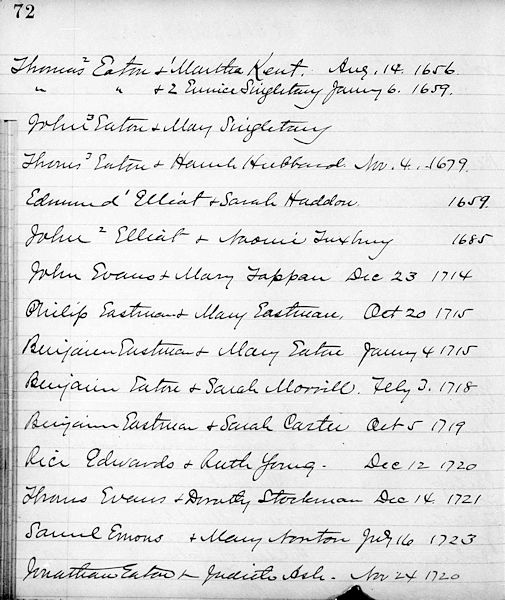 72
Thomas² Eaton & ¹Martha Kent. Aug. 14. 1656.
" " & 2 Eunice Singletary Janry 6. 1659.
John³ Eaton & Mary Singletary
Thoms³ Eaton & Hannh Hubbard Nov. 4. 1679.
Edmund¹ Elliot & Sarah Haddon 1659.
John² Elliot & Naomi Tuxbury 1685
John Evans & Mary Tappan Dec 23 1714
Philip Eastman & Mary Eastman, Oct 20 1715
Benjamin Eastman & Mary Eaton Janry 4 1715
Benjamin Eaton & Sarah Morrill. Feby 3. 1718
Benjamin Eastman & Sarah Carter Oct 5 1719
Rice Edwards & Ruth Young. Dec 12 1720
Thoms Evans & Dorothy Stockman Dec 14. 1721
Samuel Emons & Mary Norton July 16 1723
Jonathan Eaton & Judith Ash. Nov 24 1720